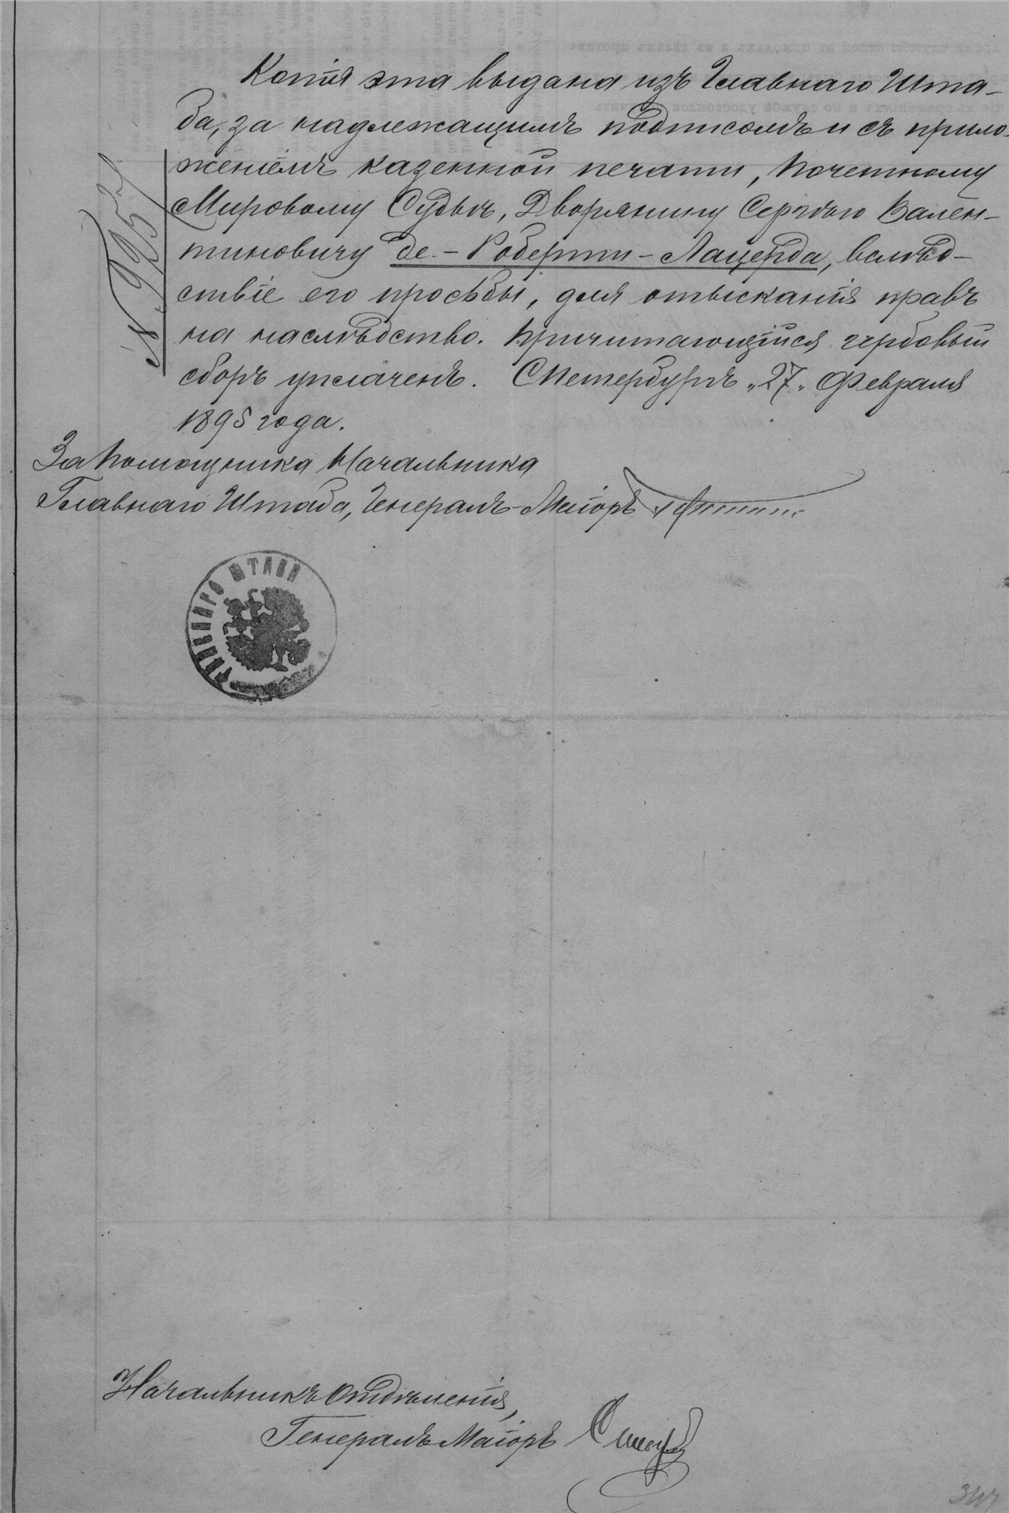 Копія эта выдана изъ Главнаго Шта-
ба, за надлежащимъ подписомъ и съ прило-
женіемъ казенной печати, Почетному
Мировому Судьѣ, Дворянину Сергѣю Вален-
тиновичу де-Роберти-Лацерда, вслѣд-
ствіе его просьбы, для отысканія правъ
на наслѣдство. Причитающійся гербовый
сборъ уплаченъ. СПетербургъ „27„ Февраля
1895 года.
№ 9253
За Помощника Начальника
Главнаго Штаба, Генералъ-Маіоръ
ГЛАВНАГО ШТАБА
Начальникъ Отдѣленія,
Генералъ Маіоръ